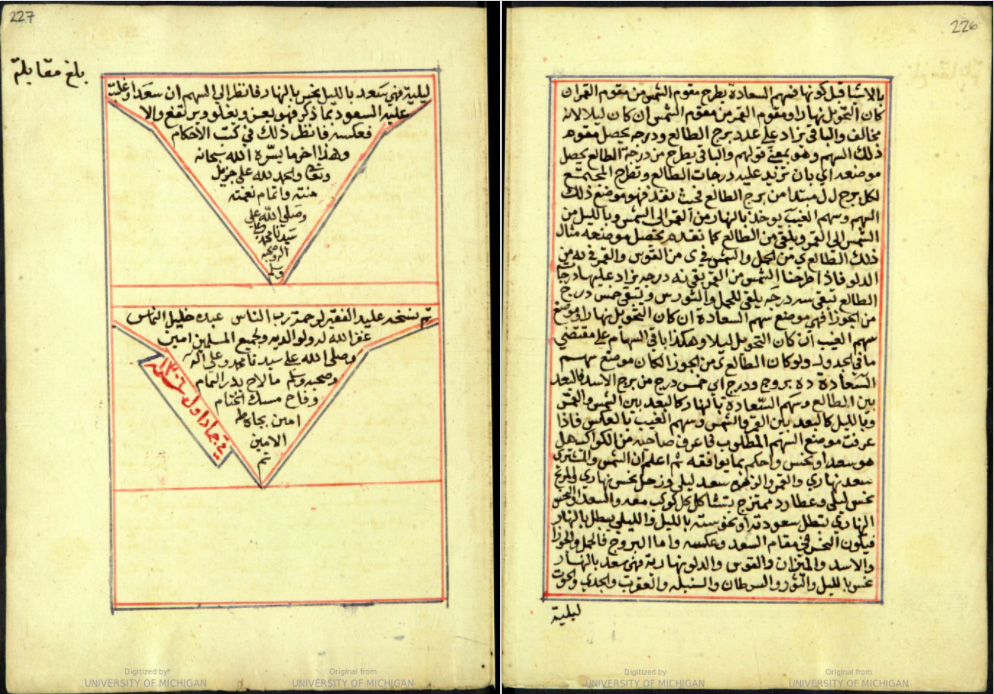 226
بالاشا قبل كونها فسهم السعادة يطرح مقوم الشمس من مقوم القمر ان
كان التحويل نهارا ومقوم القمر من مقوم الشمس ان كان ليلا لانه
مخالف والباقي يزاد على عدد برج الطالع ودرجه يحصل مقومه
ذلك السهم وهو معنى قولهم والباقي يطرح من درجة الطالع يحصل
موضعه اي بان تزيد عليه درجات الطالع وتطرح المجتمع
لكل برج ل مبتدا من برج الطالع فحيث نفد فهو موضع ذلك
السهم وسهم الغيب يوخذ بالنهار من القمر الى الشمس وبالليل من
الشمس الى القمر ويلقى من الطالع كما نقدم يحصل موضعه مثال
ذلك الطالع ى من الحمل والشمس في ى من القوس والقمر في من
الدلو فاذا طرحنا الشمس من القمر بقي نه درجه يزاد عليها درجا
الطالع تبقى سه درجه يلقى للحمل والثور س ويبقى خمس درج
من الجوزا فهي موضع سهم السعادة ان كان التحويل نهارا وموضع
سهم الغيب ان كان التحويل ليلا وهكذا باقي السهام على مقتضى
ما في الجدول ولو كان الطالع ى من الجوزا لكان موضع سهم
السعادة ده بروج ودرج اي خمس درج من برج الاسد فالبعد
بين الطالع وسهم السعادة بالنهار كالبعد بين الشمس والقمر
وبالليل كالبعد بين القمر والشمس وسهم الغيب بالعكس فاذا
عرفت موضع السهم المطلوب فاعرف صاحبه من الكواكب هل
هو سعد او نحس واحكم بما يوافقه ثم اعلم ان الشمس والمشتري
سعد نهاري والقمر والزهره سعد ليلي وزحل نحس نهاري والمريخ
نحس ليلي وعطارد ممتزج يشاكل كل كوكب معه والسعد والنحس
النهاري تبطل سعودته او نحوسته بالليل والليلي يبطل بالنهار
فيكون النحس في مقام السعد وعكسه واما البروج فالحمل والجوزا
والاسد والميزان والقوس والدلو نهارية فهي سعد بالنهار
نحس بالليل والثور والسرطان والسنبله والعقرب والجدي والحوت
ليلية
227
بلغ مقابلة
ليلية فهي سعد بالليل نحس بالنهار فانظر الى السهم ان سعدا وغلبت
عليه السعود بما ذكر فهو يعز ويعلو ويرتفع والا
فعكسه فانظر ذلك في كتب الاحكام
وهذا اخر ما يسره الله سبحانه
وتعالى والحمد لله على جزيل
منته واتمام نعمته
وصلى الله على
سيدنا محمد وعلى
اله وصحبه
وسلم
تم بنسخه عليد الفقير لرحمة رب الناس عبده خليل الناس
غفر الله له ولوالديه ولجميع المسلمين امين
وصلى الله على سيدنا محمد وعلى اله
وصحبه وسلم ما لاح بدر التمام
وفاح مسك الختام
امين بجاه طه
الامين
تم
في جماد اول سنة ١٣٠٦